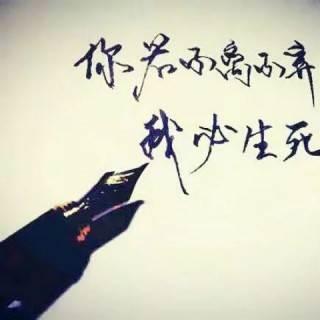 你若不离不弃
我必生死